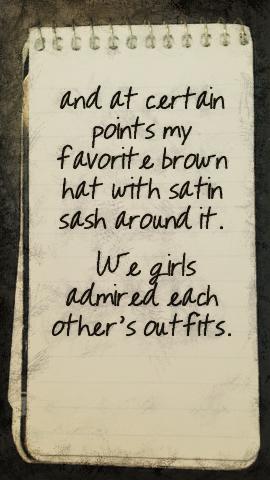 and at certain
points my
favorite brown
hat with satin
sash around it.
We girls
admired each
other's outfits.